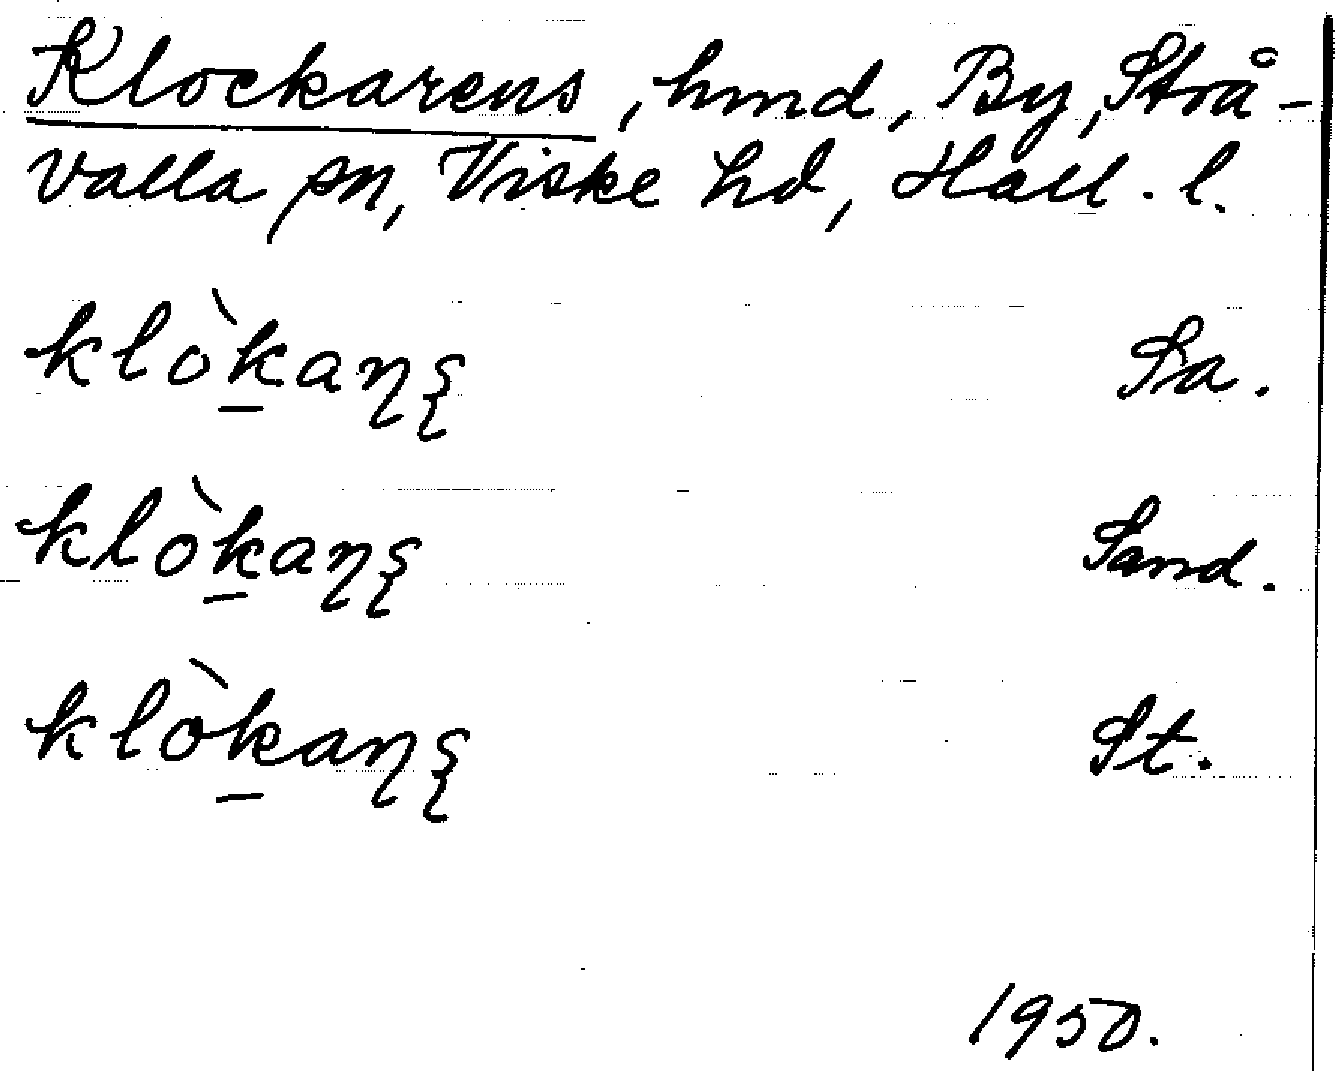 Klockarens, hmd, By, Strå-
valla sn, Viske hd, Hall. l.
klòk̠aɳʂ Sa.
klòk̠aɳʂ Sand.
klòk̠aɳʂ St.
1950.